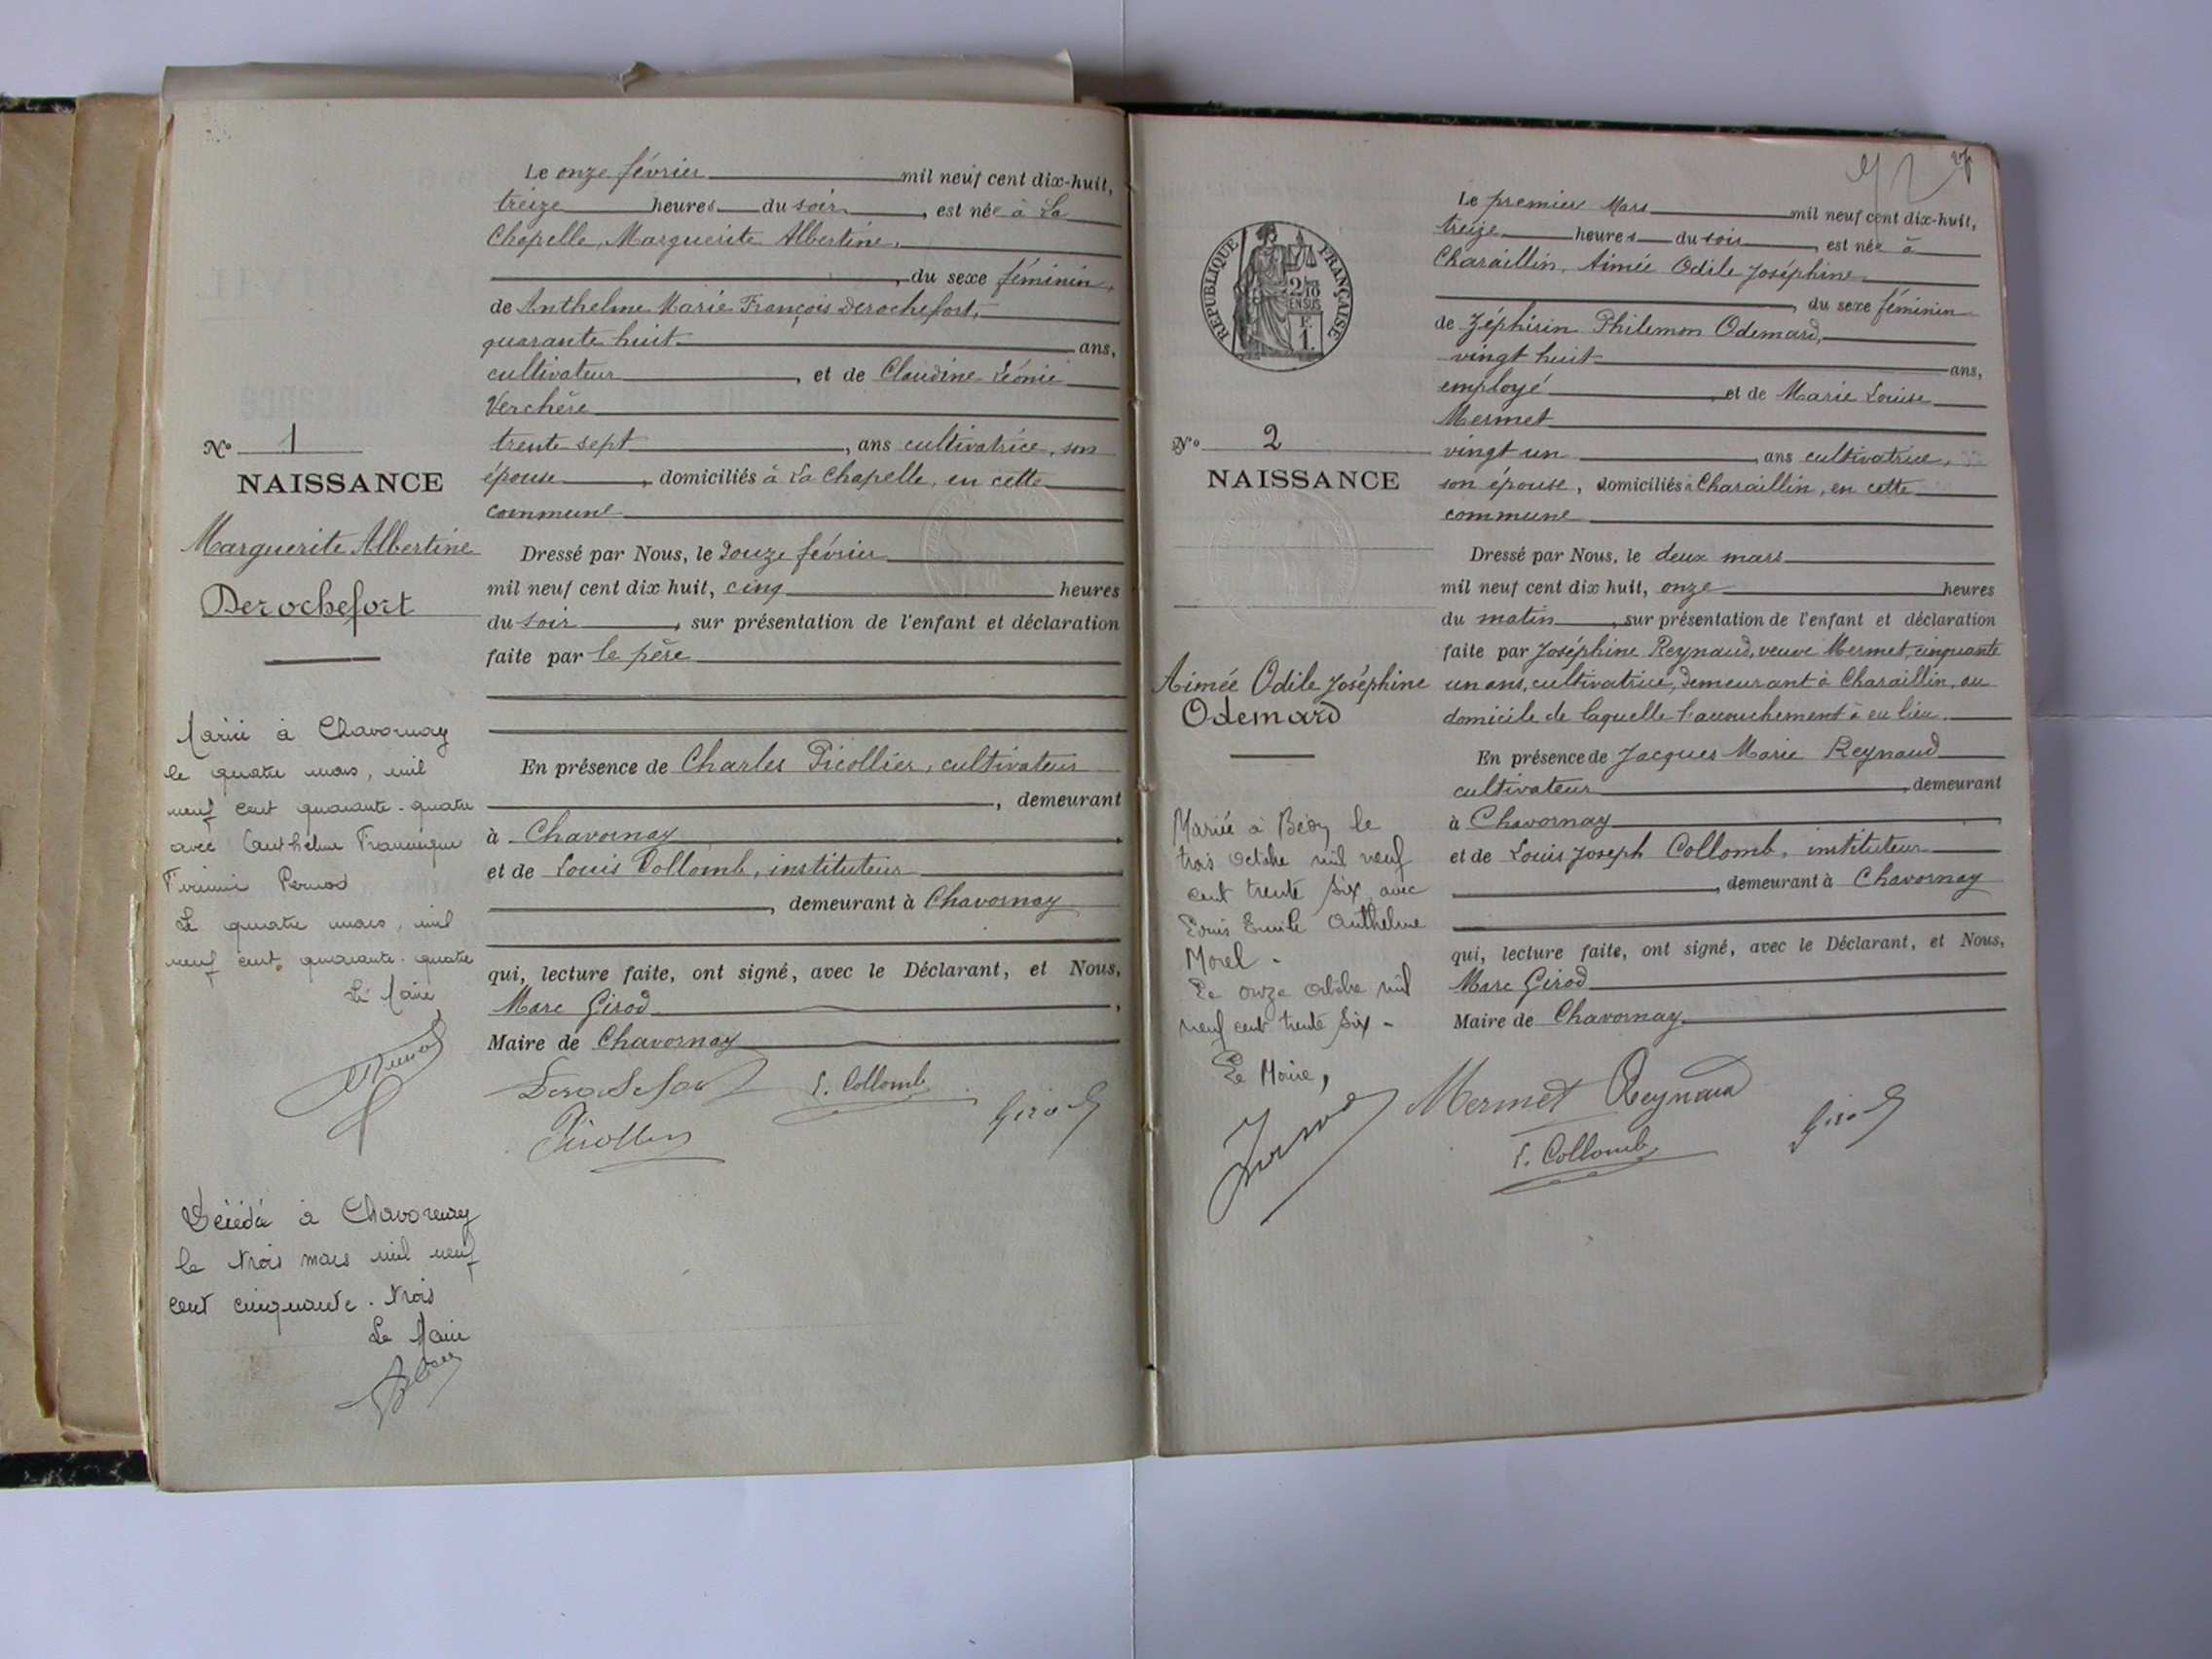 Le onze février mil neuf cent dix-huit,
treize heures du soir, est née à La
Chapelle, Marguerite Albertine,
, du sexe féminin,
de Anthelme Marie François Derochefort,
quarante huit ans,
cultivateur, et de Claudine Léonie
Verchère
trente sept, ans cultivatrice, son
épouse, domiciliés à La Chapelle, en cette
commune
Dressé par Nous, le douze février
mil neuf cent dix huit, cinq heures
du soir, sur présentation de l'enfant et déclaration
faite par le père
En présence de Charles Picollier, cultivateur
, demeurant
à Chavornay
et de Louis Collomb, instituteur
, demeurant à Chavornay
qui, lecture faite, ont signé, avec le Déclarant, et Nous,
Marc Girod,
Maire de Chavornay
Derochefort L. Collomb Girod
Picollier
No 1
NAISSANCE
Marguerite Albertine
Derochefort
Mariée à Chavornay
le quatre mars, mil
neuf cent quarante-quatre
avec Anthelme
Pernod
Le quatre mars, mil
neuf cent quarante-quatre
Le Maire,
Décédée à Chavornay
le trois mars mil neuf
cent cinquante-trois
Le Maire
RÉPUBLIQUE FRANÇAISE
2/10
EN SUS
F.
1.
No 2
NAISSANCE
Aimée Odile Joséphine
Odemard
Mariée à Béon le
trois octobre mil neuf
cent trente six, avec
Louis Emile Anthelme
Morel -
Le onze octobre mil
neuf cent trente six -
Le Maire,
Le premier Mars mil neuf cent dix-huit,
treize heures du soir, est née à
Charaillin, Aimée Odile Joséphine
, du sexe féminin
de Zéphirin Philemon Odemard,
vingt huit ans,
employé, et de Marie Louise
Mermet
vingt un, ans cultivatrice,
son épouse, domiciliés à Charaillin, en cette
commune
Dressé par Nous, le deux mars
mil neuf cent dix huit, onze heures
du matin, sur présentation de l'enfant et déclaration
faite par Joséphine Reynaud, veuve Mermet, cinquante
un ans, cultivatrice, demeurant à Charaillin, au
domicile de laquelle l'accouchement à eu lieu.
En présence de Jacques Marie Reynaud
cultivateur, demeurant
à Chavornay
et de Louis Joseph Collomb, instituteur
, demeurant à Chavornay
qui, lecture faite, ont signé, avec le Déclarant, et Nous,
Marc Girod
Maire de Chavornay
Mermet Reynaud Girod
L. Collomb